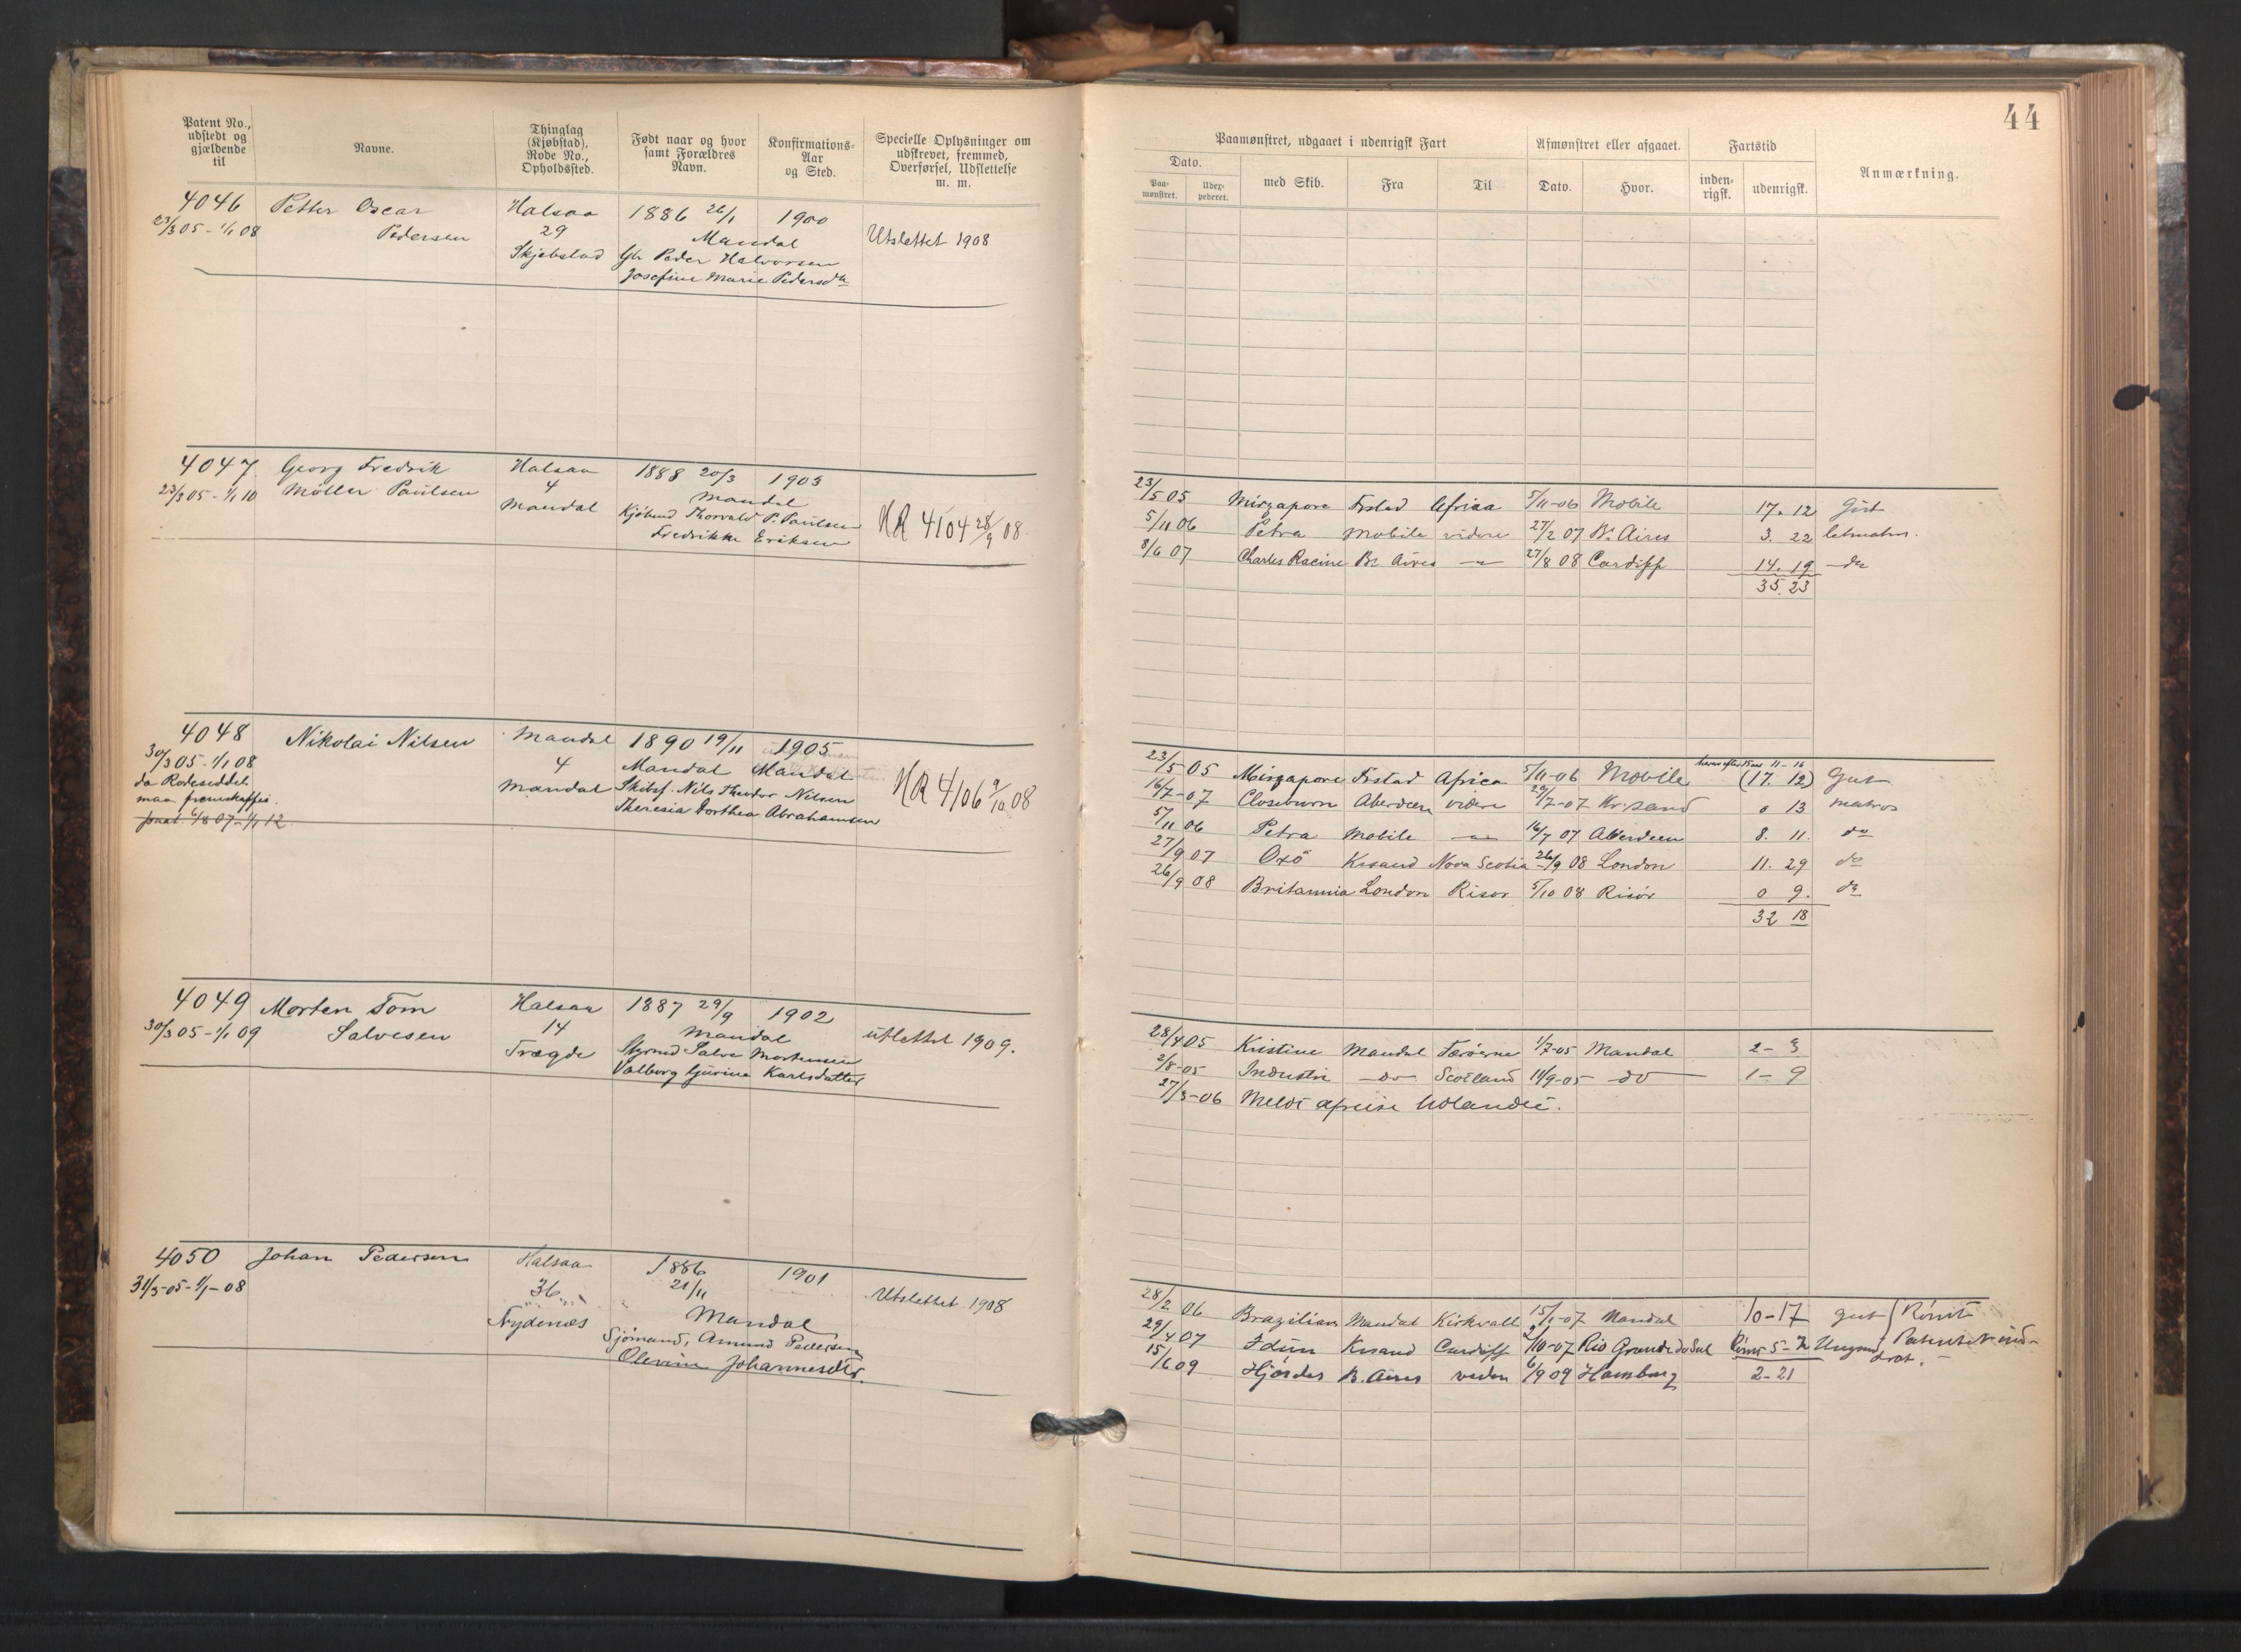 44
Patent No., udstedt og gjældende til
Navne.
Thinglag (Kjøbstad), Rode No., Opholdssted.
Født naar og hvor samt Forældres Navn.
Konfirmations-Aar og Sted.
Specielle Oplysninger om udskrevet, fremmed, Overførsel, Udslettelse m. m.
Paamønstret, udgaaet i udenrigsk Fart
Afmønstret eller afgaaet.
Fartstid
Anmærkning.
Dato.
Paa-mønstret.
Uder-pederet.
med Skib.
Fra
Til
Dato.
Hvor.
inden-rigsk.
udenrigsk.
4046 Petter Oscar Halsaa 1886 26/1 1900
23/3 05 - 1/1 08 Pedersen 29 Mandal Utslettet 1908
Skjebstad Gb. Peder Halvorsen
Josefine Marie Pedersdtr
4047 Georg Fredrik Halsaa 1888 20/3 1903
23/3 05 - 1/1 10 Möller Paulsen 4 Mandal
Mandal Kjöbmd Thorvald P. Paulsen HR 4104 28/9 08.
Fredrikke Eriksen
23/5 05 Mirzapore Frstad Africa 5/11-06 Mobile 17. 12 Gut
5/11 06 Petra Mobile videre 27/2 07 B. Aires 3. 22 letmatros.
8/6 07 Charles Racine B. Aires — " — 27/8 08 Cardiff 14. 19 — do
35. 23
4048 Nikolai Nilsen Mandal 1890 19/11 1905
30/3 05 - 1/1 08 4 Mandal Mandal
da Rodeseddel Mandal Skibsf. Nils Theodor Nilsen HR 4106 9/10 08
maa fremskaffes. Theresia Dorthea Abrahamsen
paat. 6/8 07 - 1/1 12
23/5 05 Mirzapore Frstad Africa 5/11-06 Mobile (17. 12) Gut
16/7-07 Closeburn Aberdeen videre 29/7-07 Kr.sand 0 13 Matros
5/11 06 Petra Mobile — " — 16/7 07 Aberdeen 8. 11. do
27/9 07 Oxö Krsand Nova Scotia 26/9 08 London 11. 29 do
26/9 08 Britannia London Risør 5/10 08 Risör 0 9. do
32 18
4049 Morten Tom Halsaa 1887 29/9 1902
30/3 05 - 1/1 09 Salvesen 14 Mandal utslettet 1909.
Trægde Styrmd Salve Mortensen
Valborg Gurine Karlsdatter
28/4 05 Kristine Mandal Færöerne 1/7-05 Mandal 2 - 3
2/8-05 Industri — do — Scotland 11/9-05 — do — 1 - 9
27/3-06 Meldt afreise Udlandet.
4050 Johan Pedersen Halsaa 1886 1901
31/3-05 - 1/1-08 36 21/11 Utslettet 1908
Nydenæs Mandal
Sjömand, Amund Pedersen
Olevine Johannesdtr.
28/2 06 Brazilian Mandal Kirkvall 15/1-07 Mandal 10-17 gut
29/4 07 Idun Krsand Cardiff /10-07 Rio Grande do Sul Römt 5-7 Ungmd
15/6 09 Hjørdis B. Aires veden 6/9 09 Hamburg 2-21
Römt